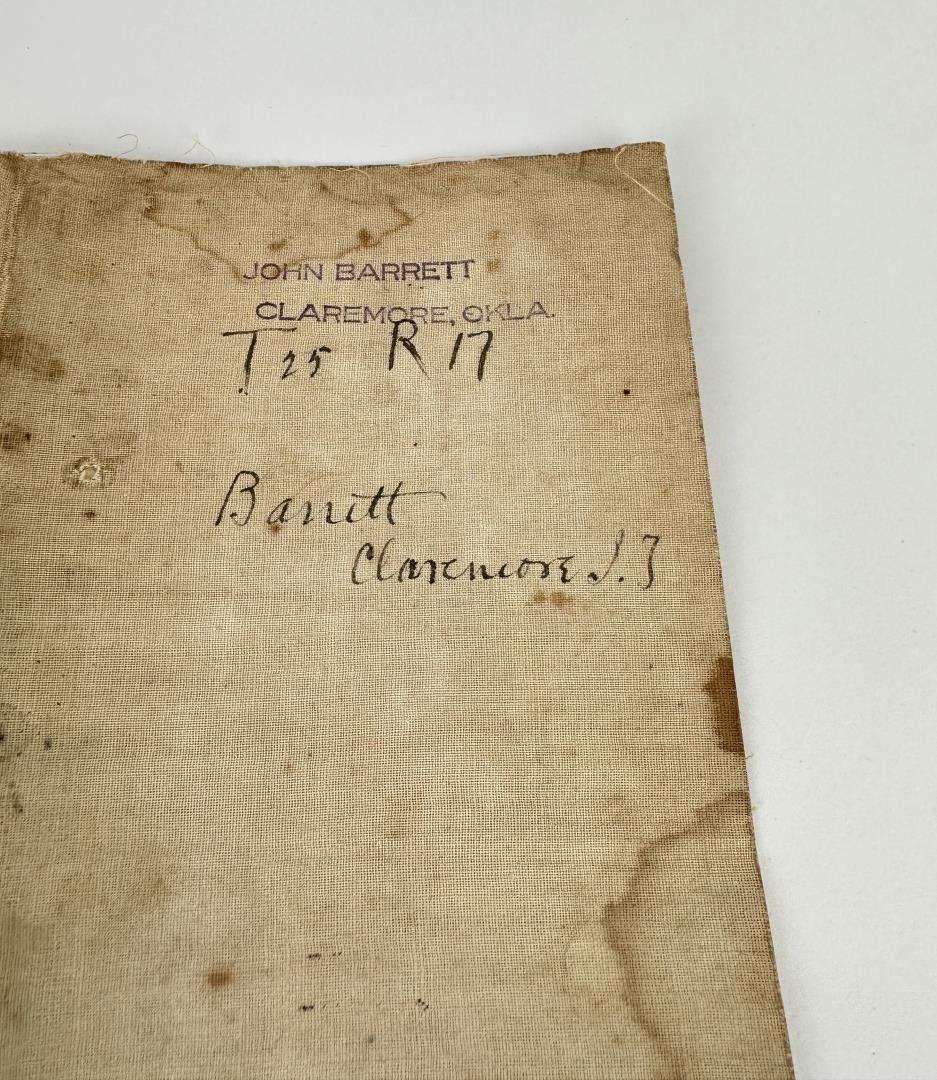 JOHN BARRETT
CLAREMORE, OKLA.
T 25 R 17
Barrett
Claremore I.T